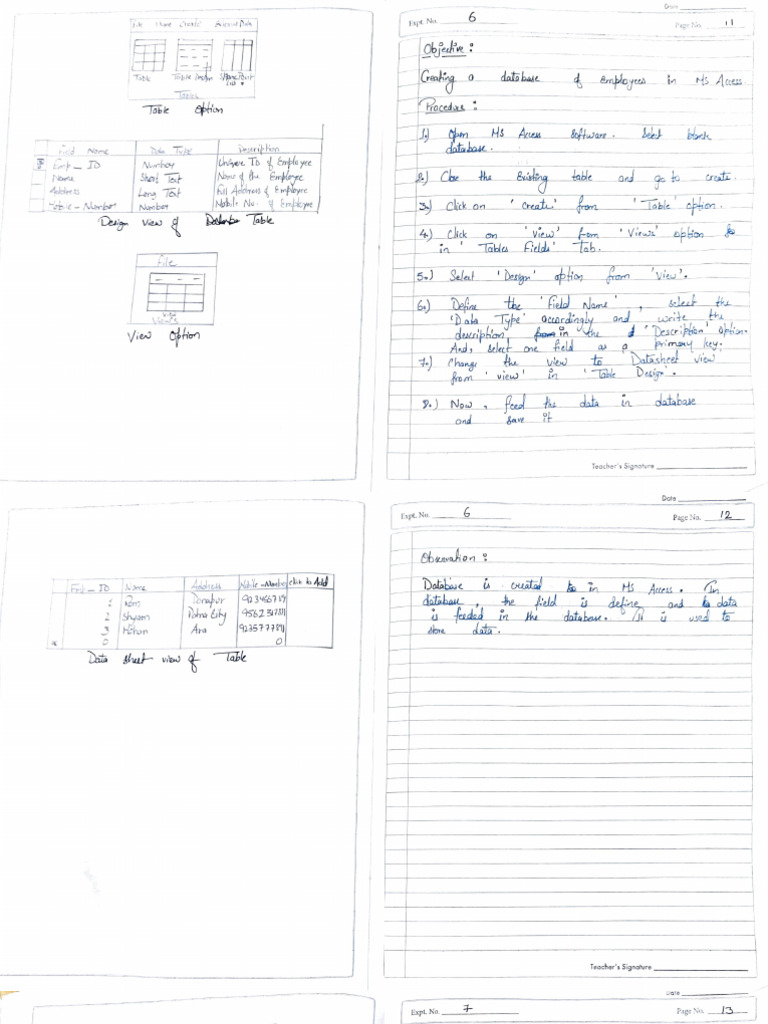 File Home Create External Data
Table
Tables
Table Option
Field Name Data Type Description
Emp_ID Number Unique ID of Employee
Name Short Text Name of the Employee
Address Long Text Full Address of Employee
Number Mobile No. of Employee
Design View of Table
File
View
Views
View Option
Date
Expt. No. 6
Page No. 11
Objective :
Creating a database of employees in MS Access
Procedure :
1.) Open MS Access Software. Select blank
database.
2.) Close the Existing table and go to create.
3.) Click on 'create' from 'Table' option.
4.) Click on 'view' from 'Views' option
in 'Tables Fields' Tab.
5.) Select 'Design' option from 'view'.
6.) Define the 'Field Name', select the
'Data Type' accordingly and write the
description in the 'Description' option.
And, select one field as a primary key.
7.) Change the view to Datasheet view
from 'view' in 'Table Design'.
8.) Now, feed the data in database
and save it
Teacher's Signature
Name Address Mobile-Number Click to Add
Ram Danapur
Shyam Patna City
Ara
* 0 0
Data sheet view of Table
Date
Expt. No. 6
Page No. 12
Observation :
Database is created in MS Access. In
database, the field is define and data
is feeded in the database. It is used to
store data.
Teacher's Signature
Date
Expt. No. 7
Page No. 13